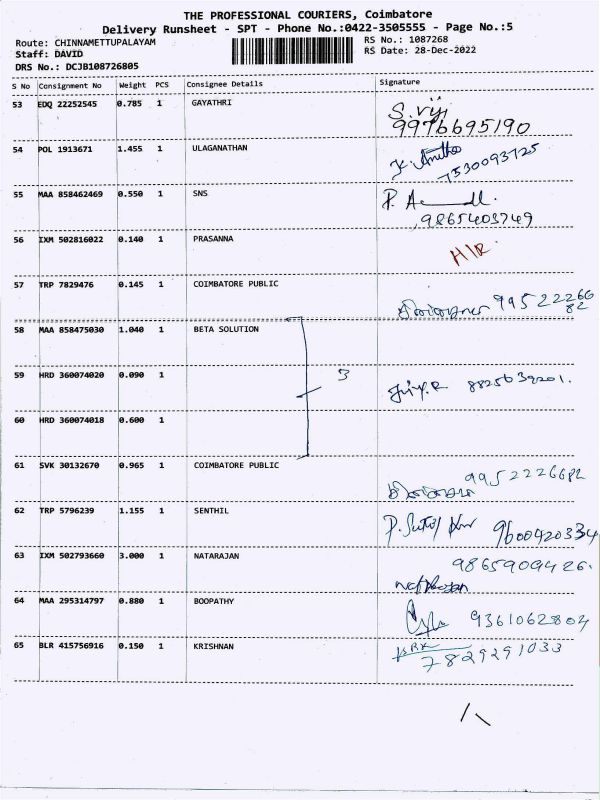 THE PROFESSIONAL COURIERS, Coimbatore
Delivery Runsheet - SPT - Phone No.:0422-3505555 - Page No.:5
Route: CHINNAMETTUPALAYAM RS No.: 1087268
Staff: DAVID RS Date: 28-Dec-2022
DRS No.: DCJB108726805
S No Consignment No Weight PCS Consignee Details Signature
53 EDQ 22252545 0.785 1 GAYATHRI S.vij
9976695190
54 POL 1913671 1.455 1 ULAGANATHAN
7530093725
55 MAA 858462469 0.550 1 SNS P.
9865403749
56 IXM 502816022 0.140 1 PRASANNA H/R
57 TRP 7829476 0.145 1 COIMBATORE PUBLIC 99522266
82
58 MAA 858475030 1.040 1 BETA SOLUTION
59 HRD 360074020 0.090 1 3 8825639201.
60 HRD 360074018 0.600 1
61 SVK 30132670 0.965 1 COIMBATORE PUBLIC 9952226682
62 TRP 5796239 1.155 1 SENTHIL 9600420334
63 IXM 502793660 3.000 1 NATARAJAN 9865909426.
64 MAA 295314797 0.880 1 BOOPATHY 9361062804
65 BLR 415756916 0.150 1 KRISHNAN
7829291033